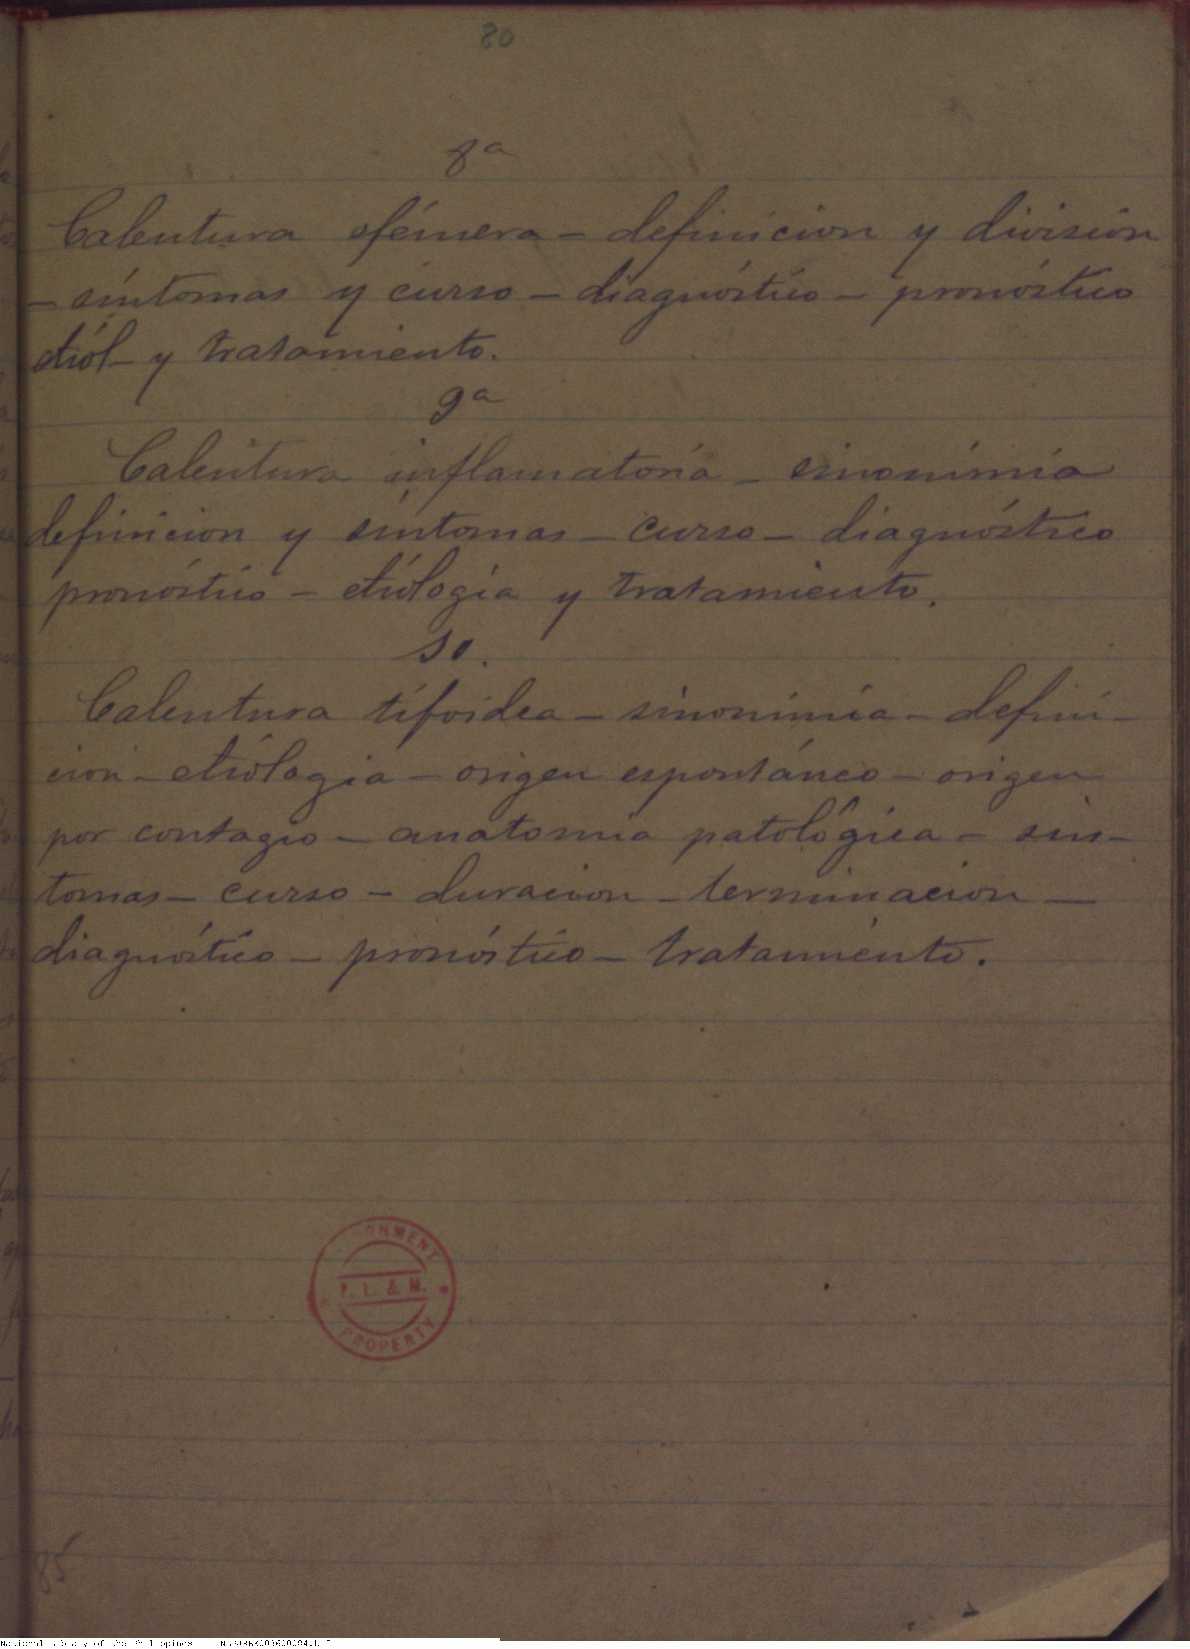 80
8ª
Calentura efémera - definicion y división
- síntomas y curso - diagnóstico - pronóstico
etiol - y tratamiento.
9ª
Calentura inflamatoria - sinonimia
definicion y síntomas - curso - diagnóstico
pronóstico - etiología y tratamiento.
10.
Calentura tifoidea - sinonimia - defini-
cion - etiología - origen espontáneo - origen
por contagio - anatomia patológica - sín-
tomas - curso - duracion - terminacion -
diagnóstico - pronóstico - tratamiento.
P. L. & M.
PROPERTY
85
National Library of the Philippines